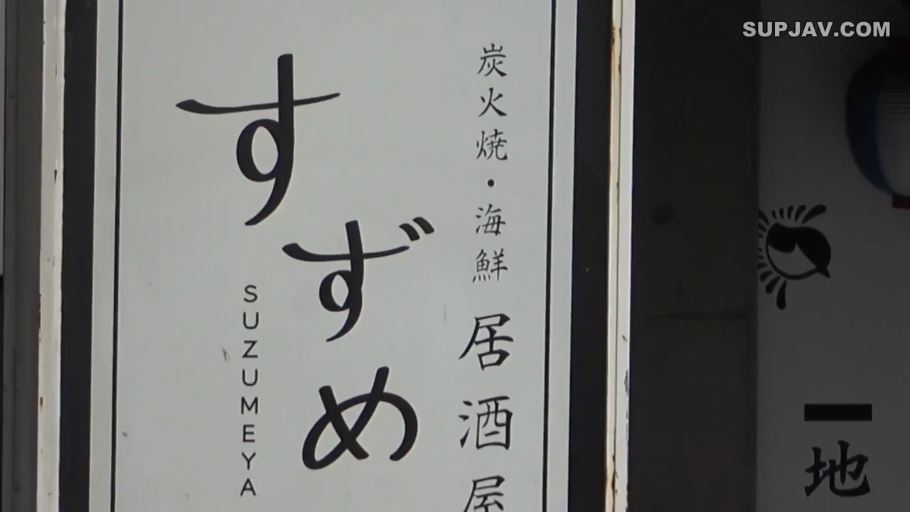 SUPJAV.COM
炭火焼・海鮮
居酒屋
すずめ
SUZUMEYA
地